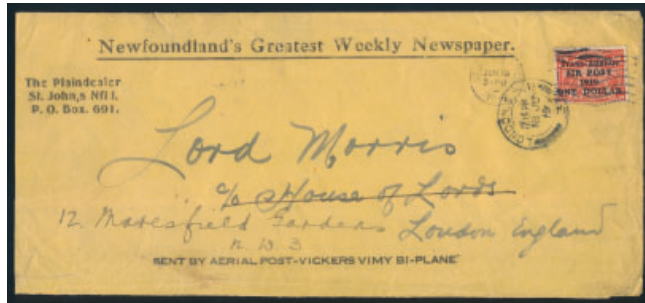 Newfoundland's Greatest Weekly Newspaper.
The Plaindealer
St. John,s Nfld.
P. O. Box. 691.
Trans-Atlantic
AIR POST
1919
ONE DOLLAR
LONDON
Lord Morris
c/o House of Lords
12 Maresfield Gardens London England
N.W.3
SENT BY AERIAL POST-VICKERS VIMY BI-PLANE